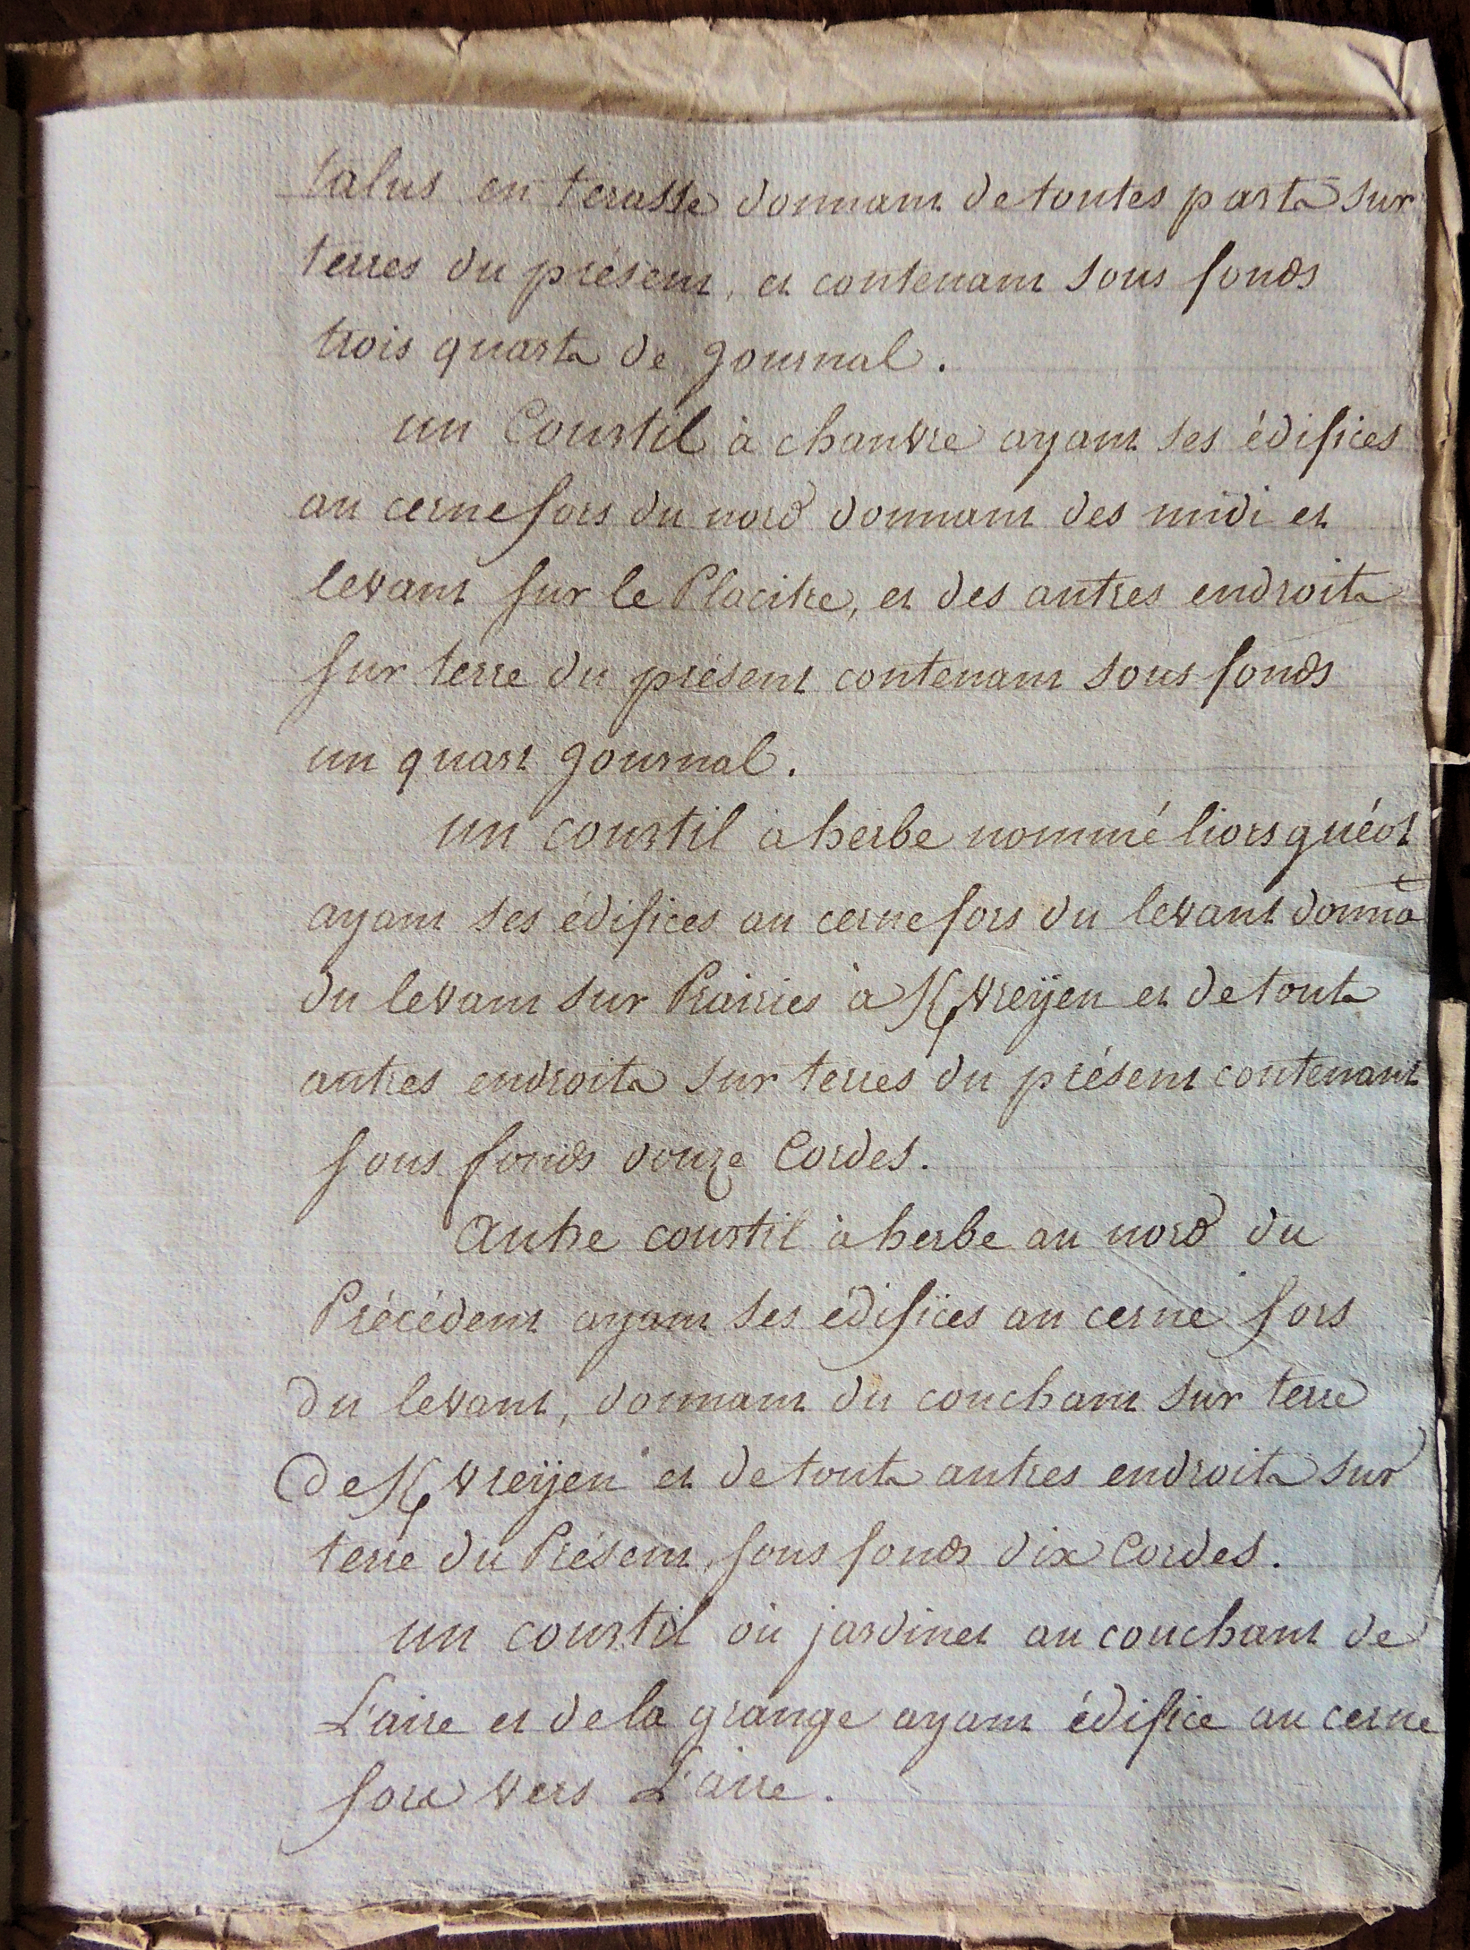 talus en terasse donnant de toutes parts sur
terres du présent, et contenant sous fonds
trois quarts de journal.
un Courtil à chanvre ayant ses édifices
au cerne fors du nord donnant des midi et
levant sur le Placitre, et des autres endroits
sur terre du présent contenant sous fonds
un quart journal.
un courtil à herbe nommé liorsguéot
ayant ses édifices au cerne fors du levant donna
du levant sur Prairies à K/vreÿen et de touts
autres endroits sur terres du présent contenant
sous fonds douze Cordes.
Autre courtil à herbe au nord du
Précédent ayant ses édifices au cerne fors
du levant, donnant du couchant sur terre
de K/vreÿen et de touts autres endroits sur
terre du Présent, sous fonds dix Cordes.
un courtil où jardinet au couchant de
L'aire et de la grange ayant édifice au cerne
fors vers L'aire.